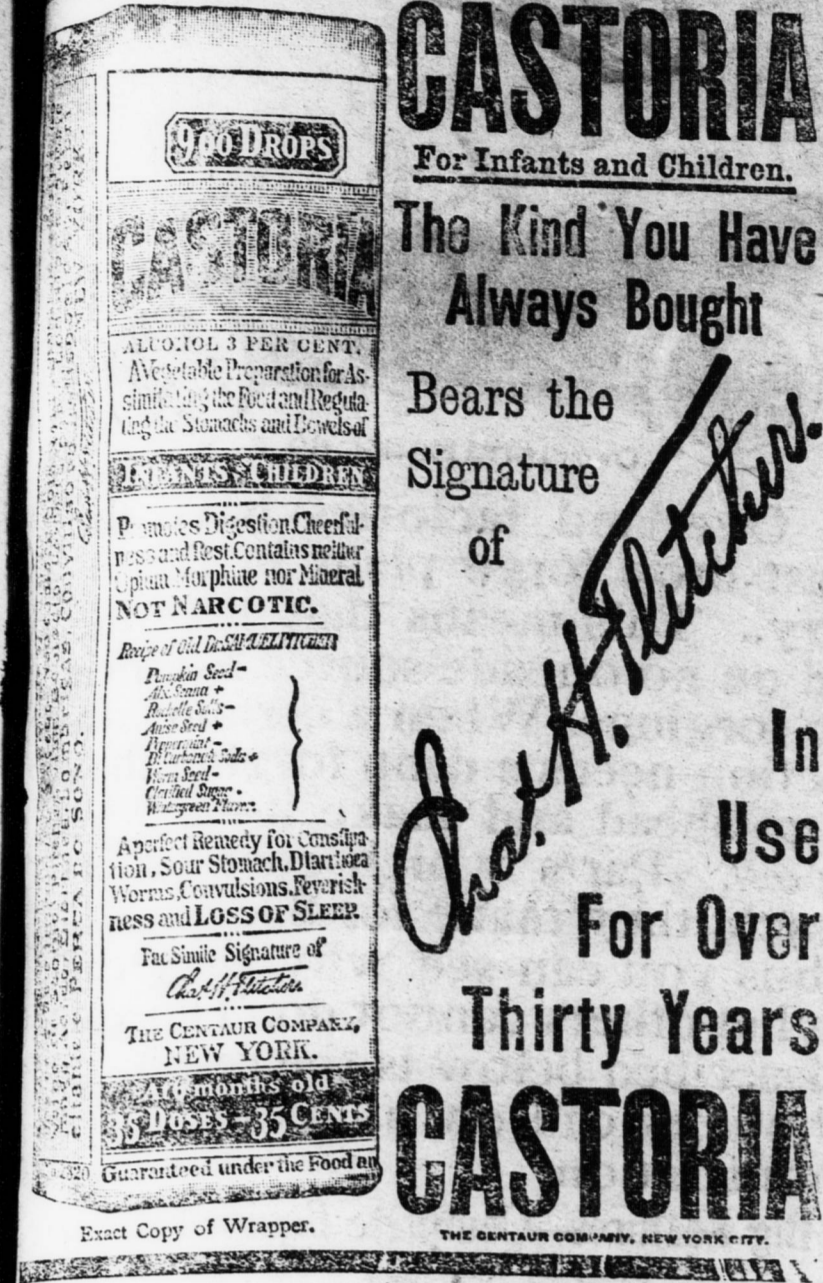 900 DROPS
CASTORIA
ALCOHOL 3 PER CENT.
A Vegetable Preparation for As-
similating the Food and Regula-
ting the Stomachs and Bowels of
INFANTS & CHILDREN
Promotes Digestion, Cheerful-
ness and Rest. Contains neither
Opium Morphine nor Mineral
NOT NARCOTIC.
Recipe of Old Dr. SAMUEL PITCHER
Pumpkin Seed -
Alx. Senna +
Rochelle Salts -
Anise Seed +
Peppermint -
Bi Carbonate Soda +
Worm Seed -
Clarified Sugar .
Wintergreen Flavor.
A perfect Remedy for Constipa-
tion, Sour Stomach, Diarrhoea
Worms, Convulsions, Feverish-
ness and LOSS OF SLEEP.
Fac Simile Signature of
Chas. H. Fletcher.
THE CENTAUR COMPANY,
NEW YORK.
At 6 months old
35 DOSES - 35 CENTS
Guaranteed under the Food an
Exact Copy of Wrapper.
CASTORIA
For Infants and Children.
The Kind You Have
Always Bought
Bears the
Signature
of
Chas. H. Fletcher.
In
Use
For Over
Thirty Years
CASTORIA
THE CENTAUR COMPANY, NEW YORK CITY.